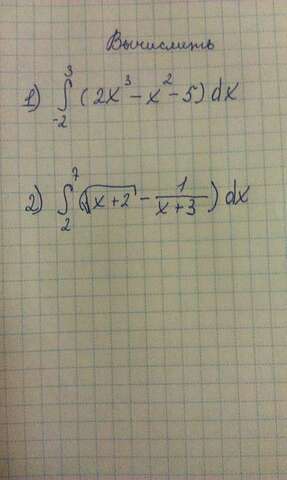 Вычислить
1) ∫₋₂³ (2x³ - x² - 5) dx
2) ∫₂⁷ (√(x+2) - 1/(x+3)) dx